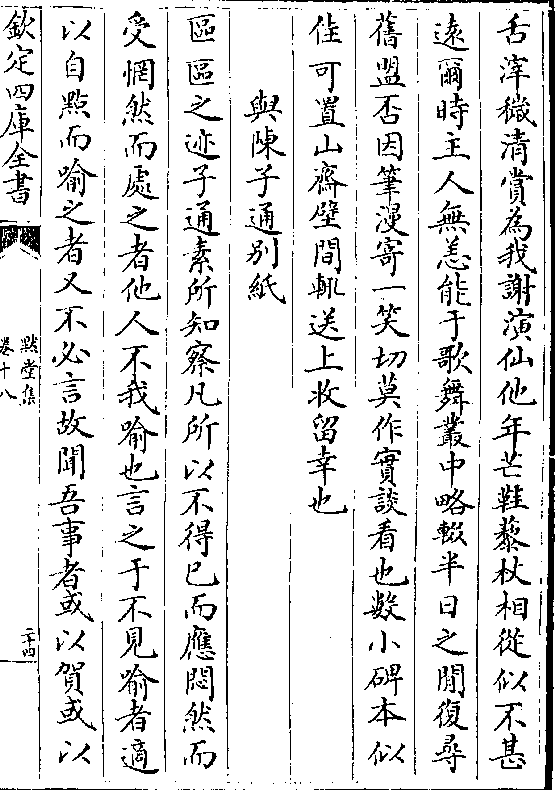 舌滓穢清賞為我謝演仙他年芒鞋藜杖相從似不甚
遠爾時主人無恙能于歌舞叢中略輟半日之閒復尋
舊盟否因筆漫寄一笑切莫作實談看也數小碑本似
佳可置山齋壁間輒送上收留幸也
與陳子通别紙
區區之迹子通素所知察凡所以不得已而應悶然而
受惘然而處之者他人不我喻也言之于不見喻者適
以自㸃而喻之者又不必言故聞吾事者或以賀或以
欽定四庫全書
黙堂集
卷十八
二十四